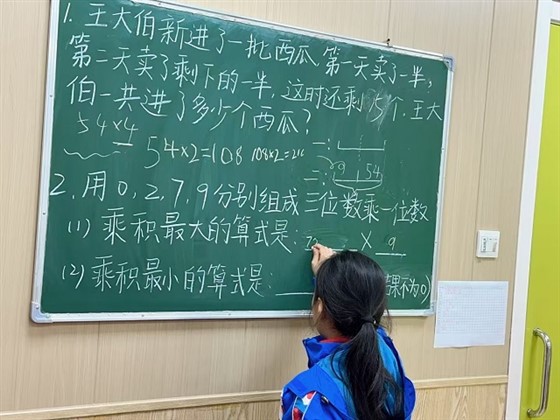 1. 王大伯新进了一批西瓜 第一天卖了一半,
第二天卖了剩下的一半, 这时还剩 个. 王大
伯一共进了多少个西瓜?
54×4
54×2=108 108×2=216
一:
二: 54
2, 用0, 2, 7, 9分别组成三位数乘一位数
(1) 乘积最大的算式是: 7 × 9
(2) 乘积最小的算式是: 果不为0)